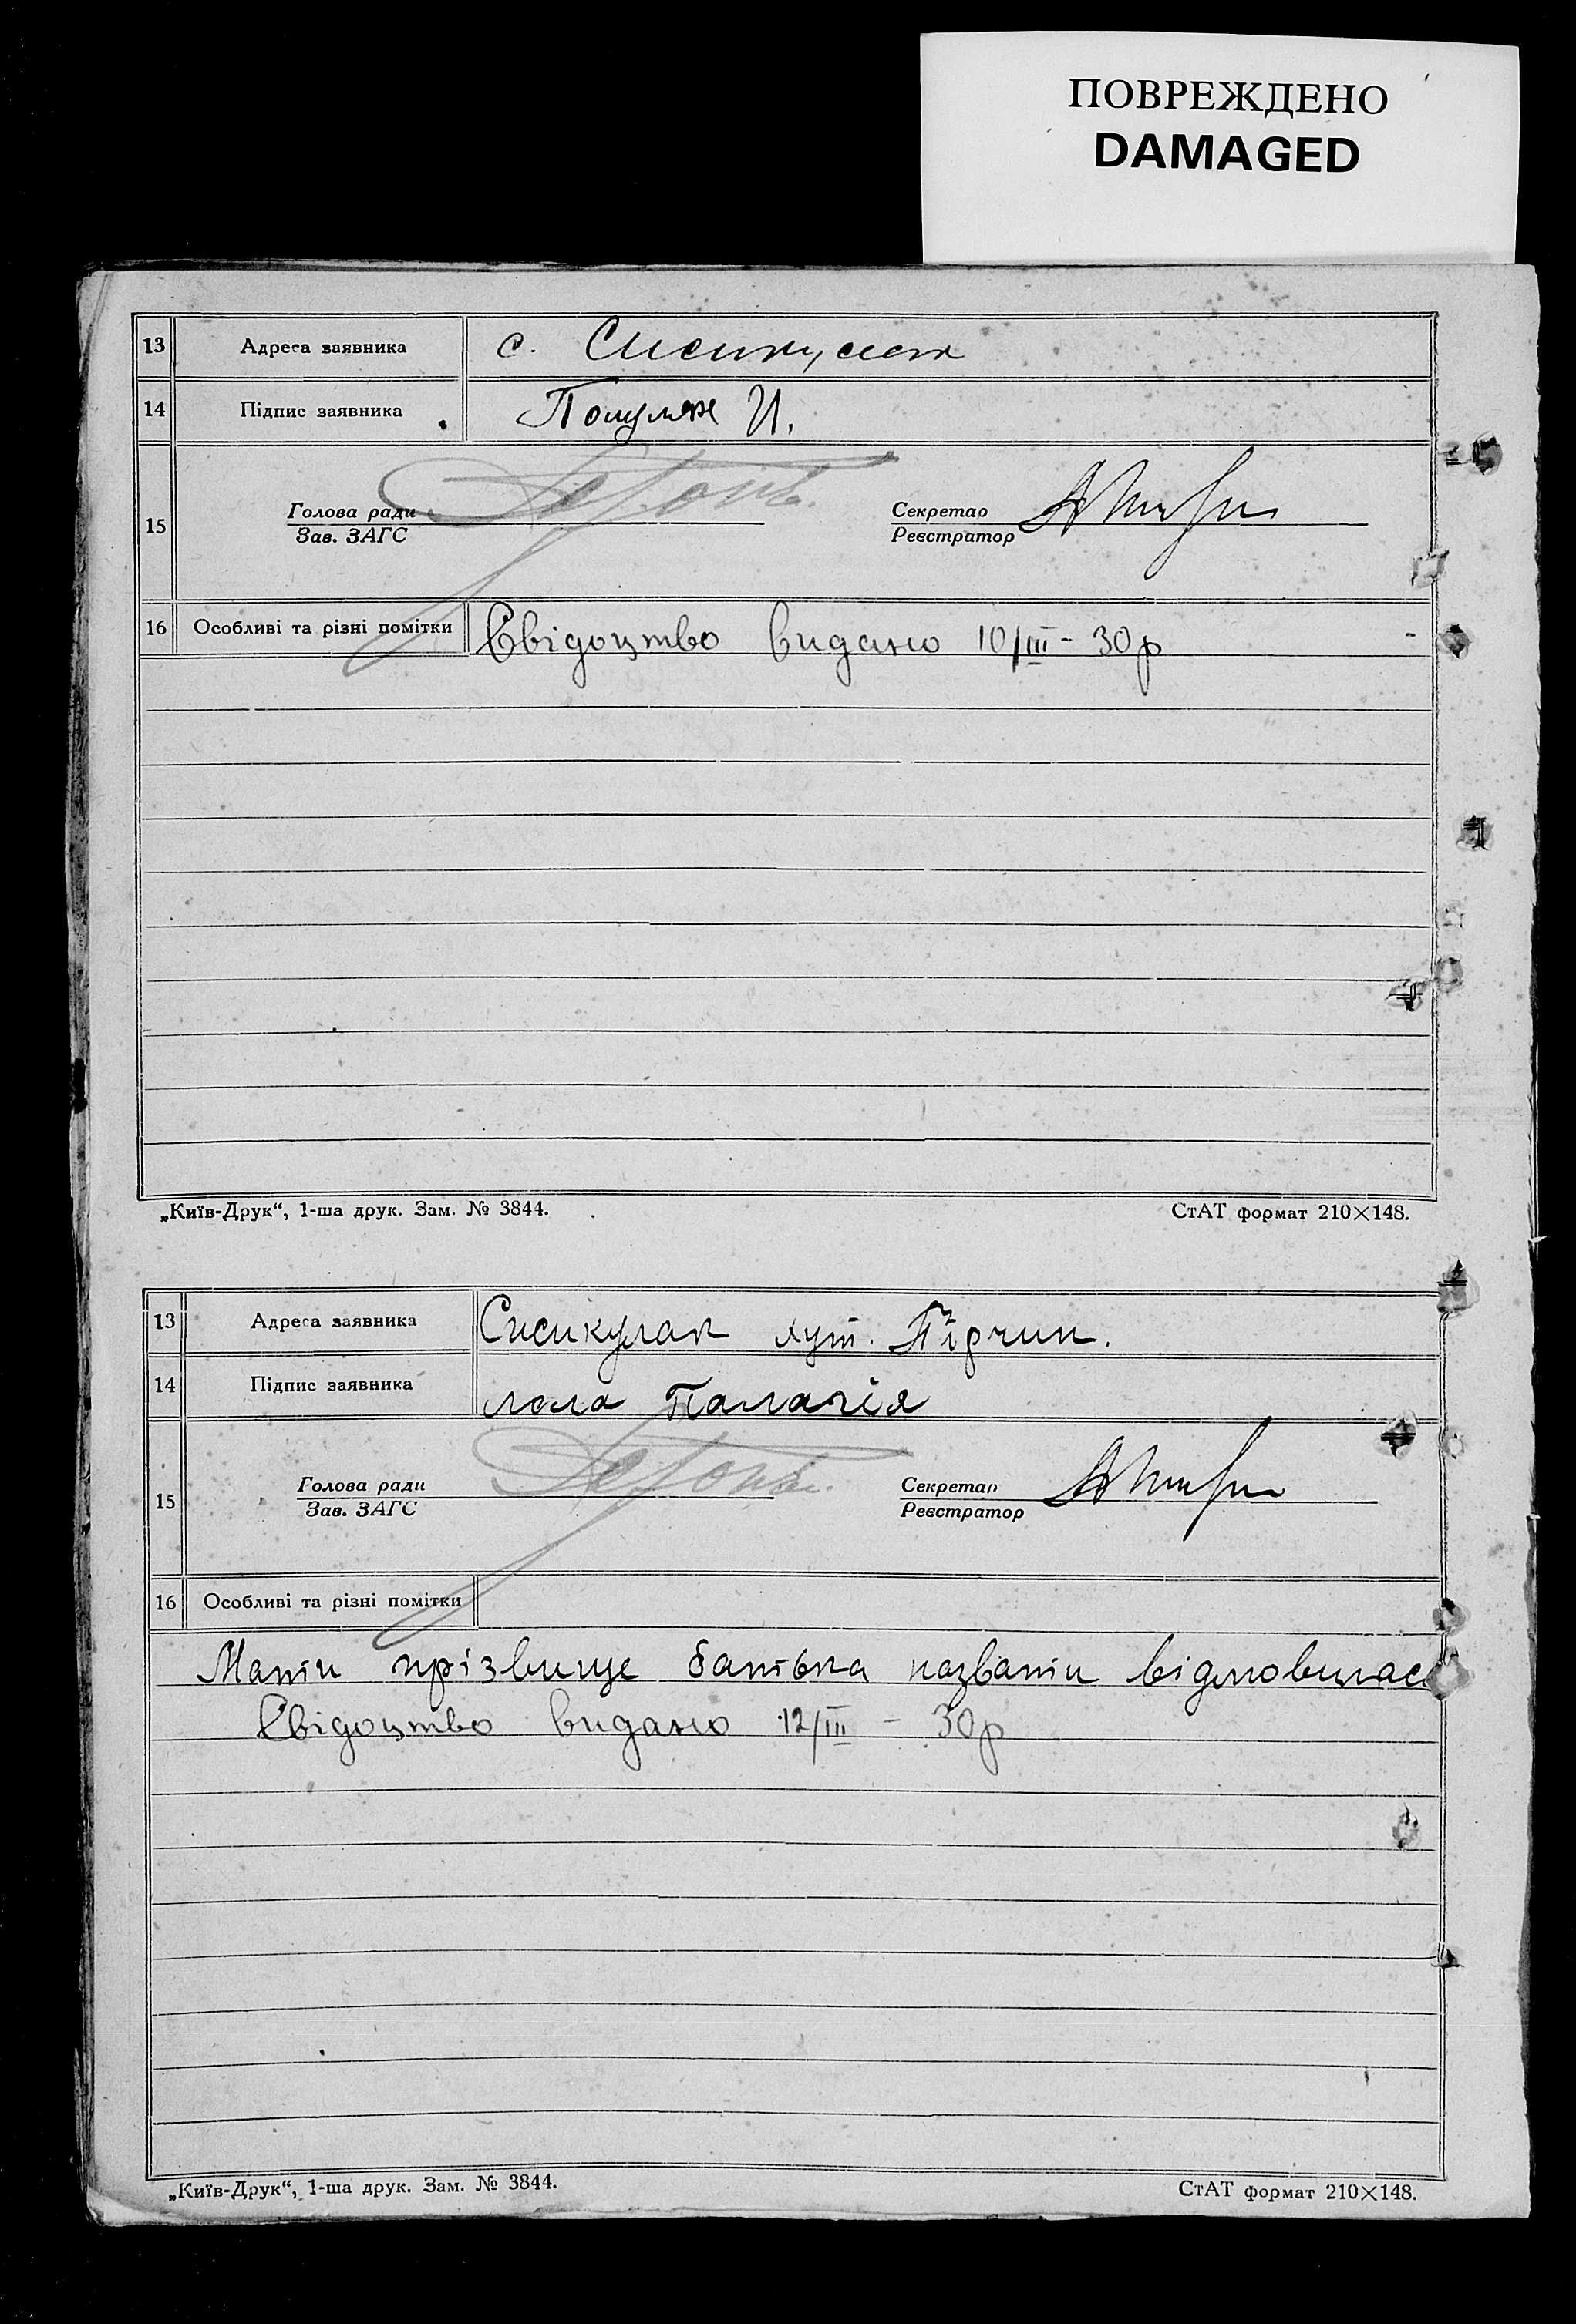 ПОВРЕЖДЕНО
DAMAGED
13 Адреса заявника с.
14 Підпис заявника И.
15 Голова ради Секретар
Зав. ЗАГС Реєстратор
16 Особливі та різні помітки Свідоцтво видано 10/III - 30р
„Київ-Друк“, 1-ша друк. Зам. № 3844. СтАТ формат 210×148.
13 Адреса заявника хут.
14 Підпис заявника Палагія
15 Голова ради Секретар
Зав. ЗАГС Реєстратор
16 Особливі та різні помітки
Мати прізвище батька назвати відмовилась
Свідоцтво видано 12/III - 30р
„Київ-Друк“, 1-ша друк. Зам. № 3844. СтАТ формат 210×148.